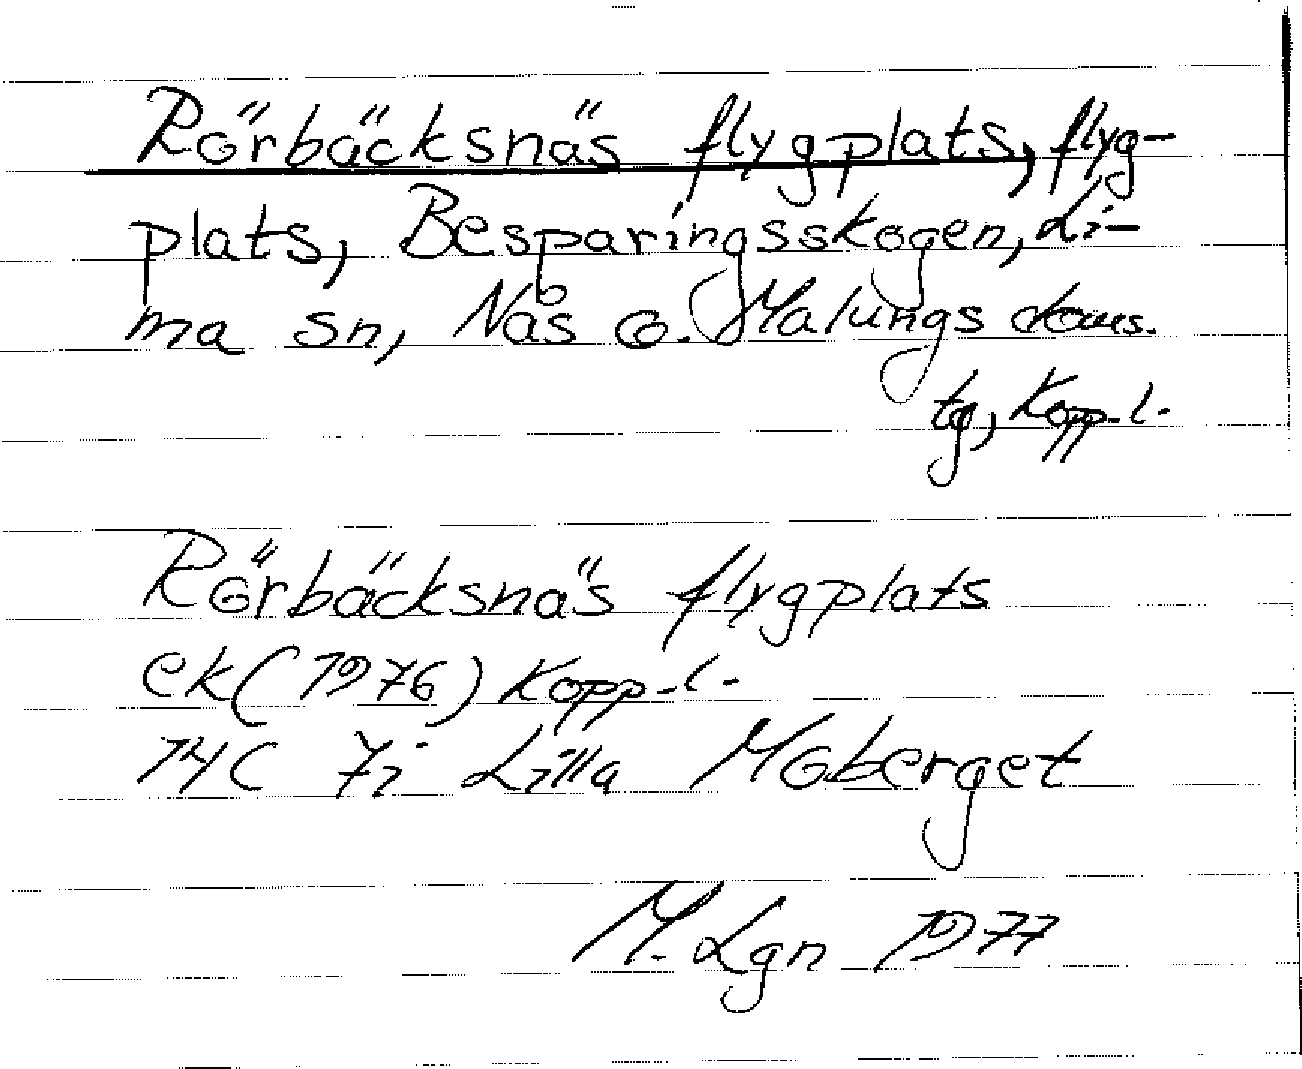 Rörbäcksnäs flygplats, flyg-
plats, Besparingsskogen, Li-
ma sn, Nås o. Malungs doms.
tg, Kopp. l.
Rörbäcksnäs flygplats
ek (1976) Kopp. l.
14C 7i Lilla Moberget
M. Lgn 1977